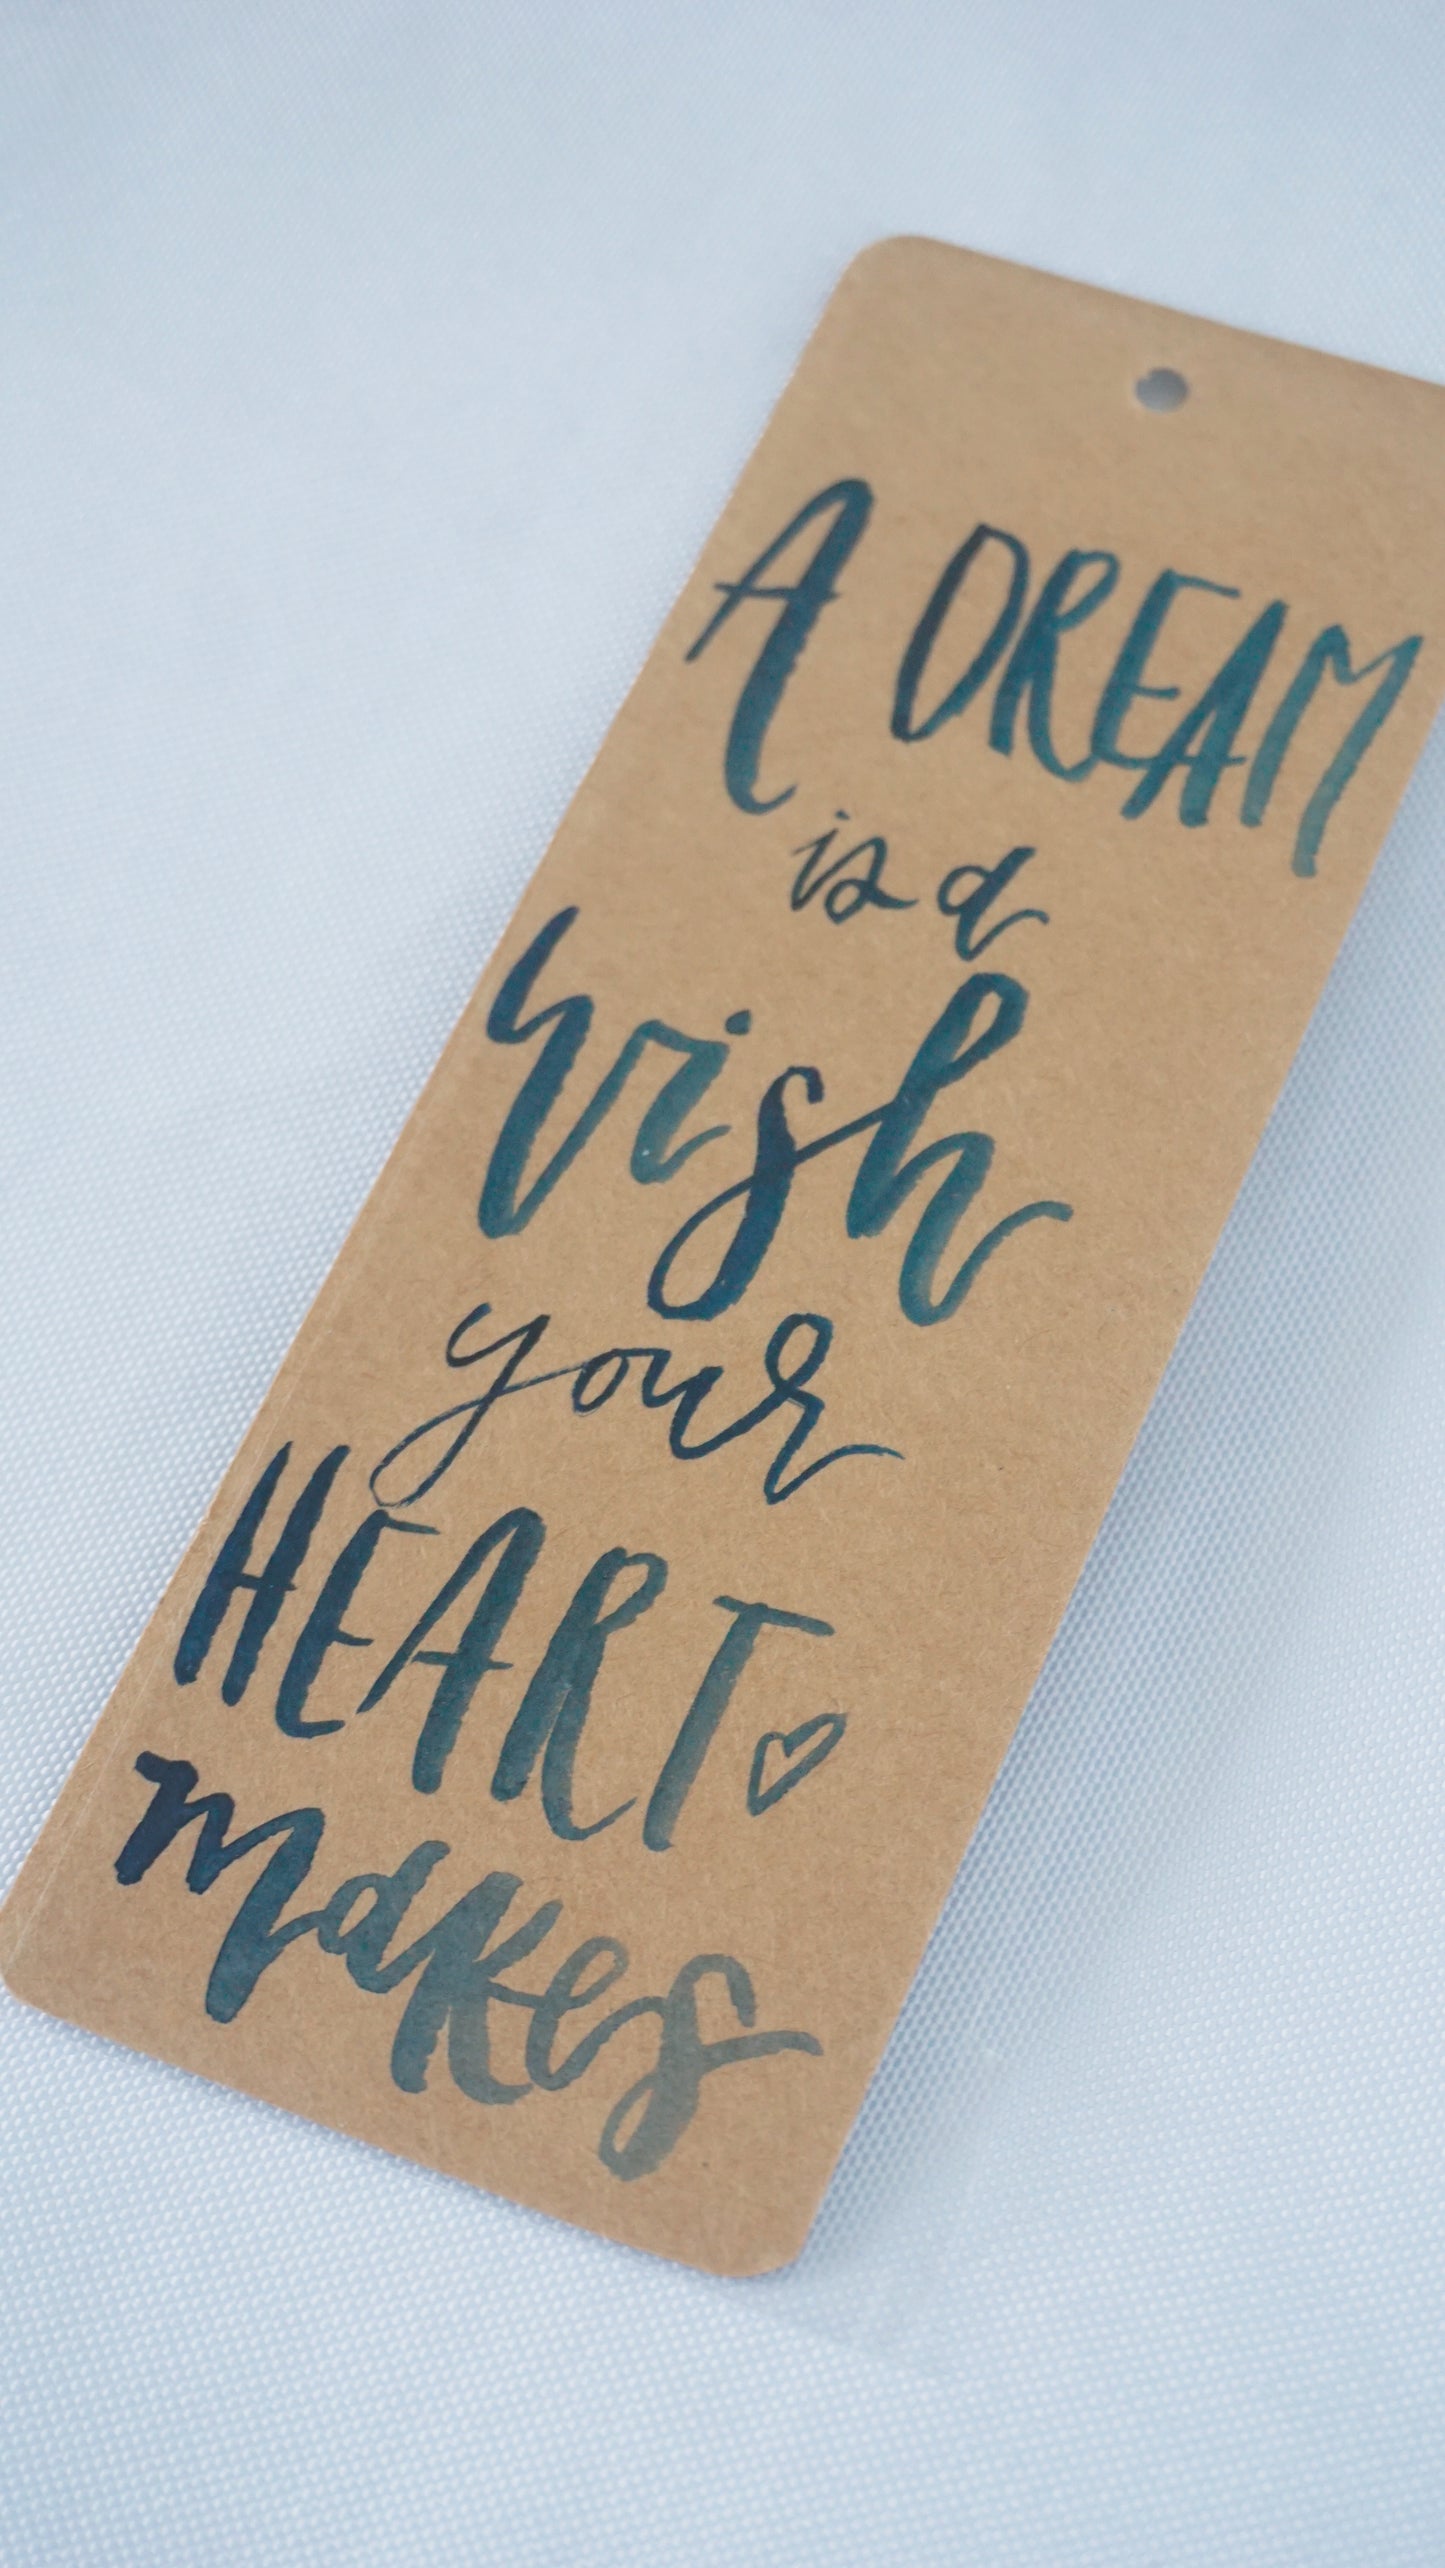 A DREAM
is a
Wish
your
HEART
makes